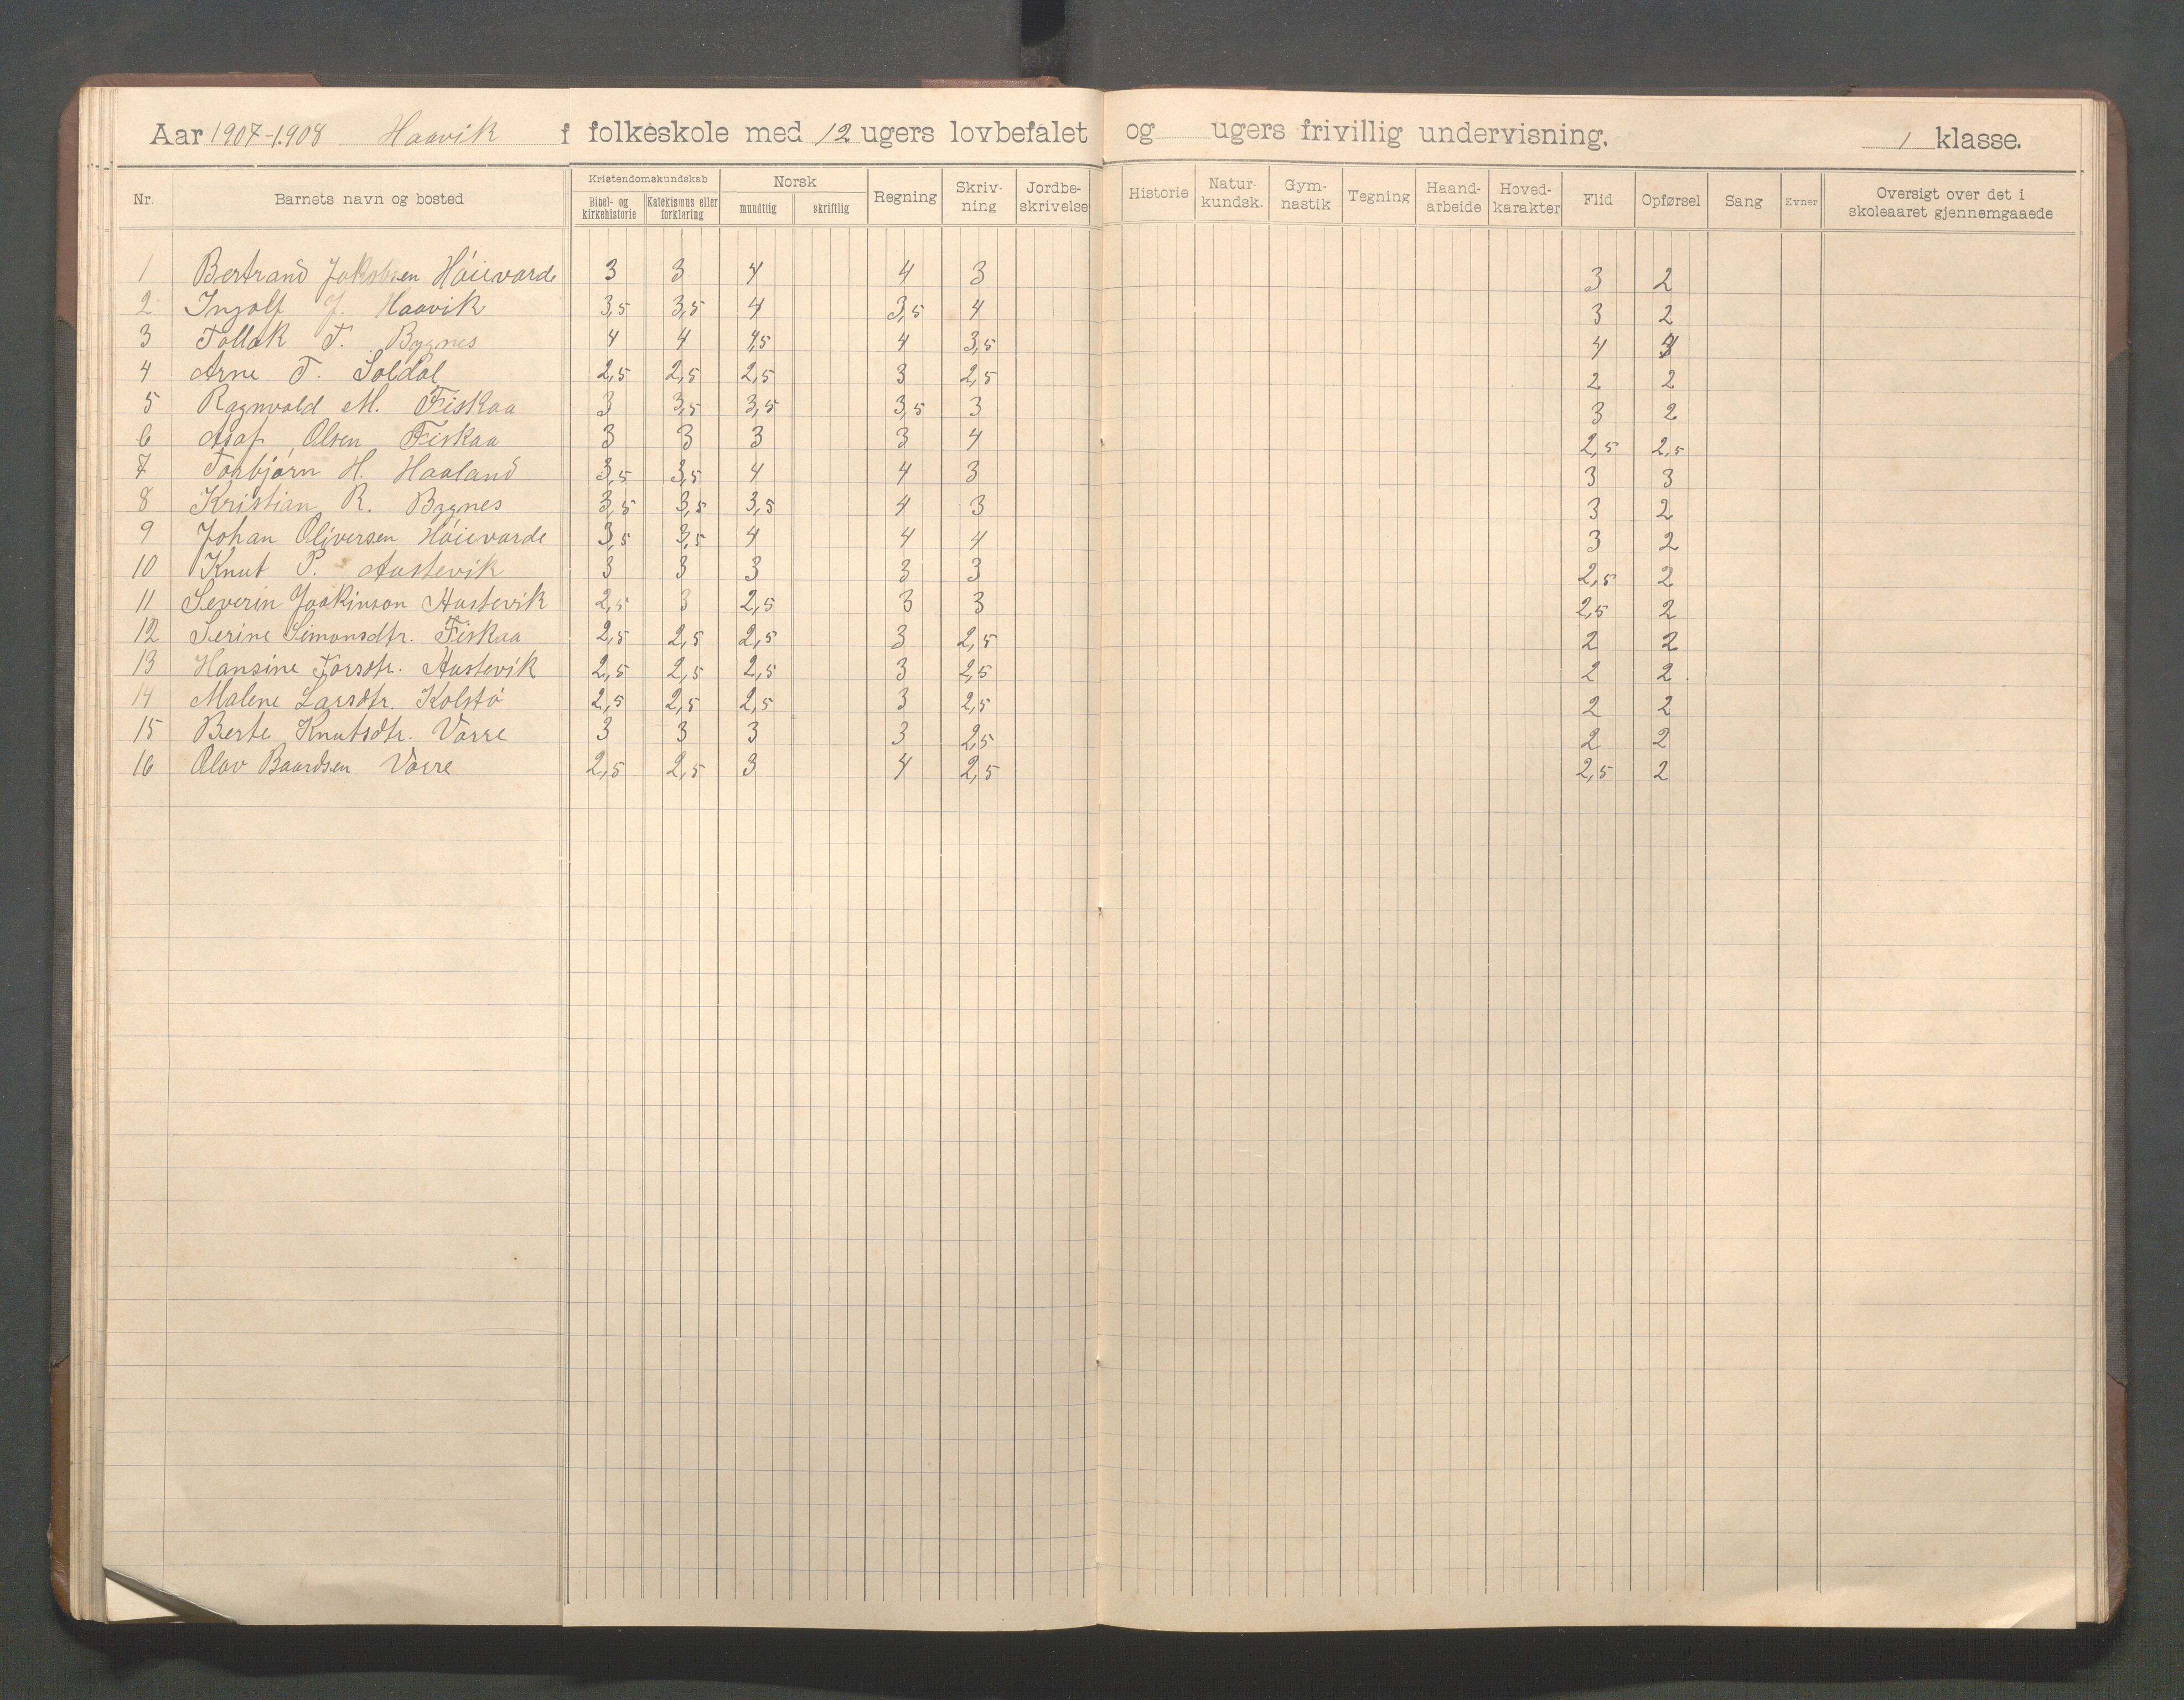 Aar 1907-1908 Haavik f folkeskole med 12 ugers lovbefalet og ugers frivillig undervisning. 1 klasse.
Nr. Barnets navn og bosted Kristendomskundskab Bibel- og kirkehistorie Katekismus eller forklaring Norsk mundtlig skriftlig Regning Skriv-ning Jordbe-skrivelse Historie Natur-kundsk. Gym-nastik Tegning Haand-arbeide Hoved-karakter Flid Opførsel Sang Evner Oversigt over det i skoleaaret gjennemgaaede
1 Bertrand Jakobsen Høievarde 3 3 4 4 3 3 2
2 Ingolf J. Haavik 3,5 3,5 4 3,5 4 3 2
3 Tollak T. Bygnes 4 4 4,5 4 3,5 4
4 Arne T. Soldal 2,5 2,5 2,5 3 2,5 2 2
5 Ragnvald M. Fiskaa 3 3,5 3,5 3,5 3 3 2
6 Asaf Olsen Fiskaa 3 3 3 3 4 2,5 2,5
7 Torbjørn H. Haaland 3,5 3,5 4 4 3 3 3
8 Kristian R. Bygnes 3,5 3,5 3,5 4 3 3 2
9 Johan Oliversen Høievarde 3,5 3,5 4 4 4 3 2
10 Knut P. Austevik 3 3 3 3 3 2,5 2
11 Severin Joakinson Austevik 2,5 3 2,5 3 3 2,5 2
12 Serine Simonsdtr. Fiskaa 2,5 2,5 2,5 3 2,5 2 2
13 Hansine Torsdtr. Austevik 2,5 2,5 2,5 3 2,5 2 2
14 Malene Larsdtr. Kolstø 2,5 2,5 2,5 3 2,5 2 2
15 Berte Knutsdtr. Vorre 3 3 3 3 2,5 2 2
16 Olav Baardsen Vorre 2,5 2,5 3 4 2,5 2,5 2